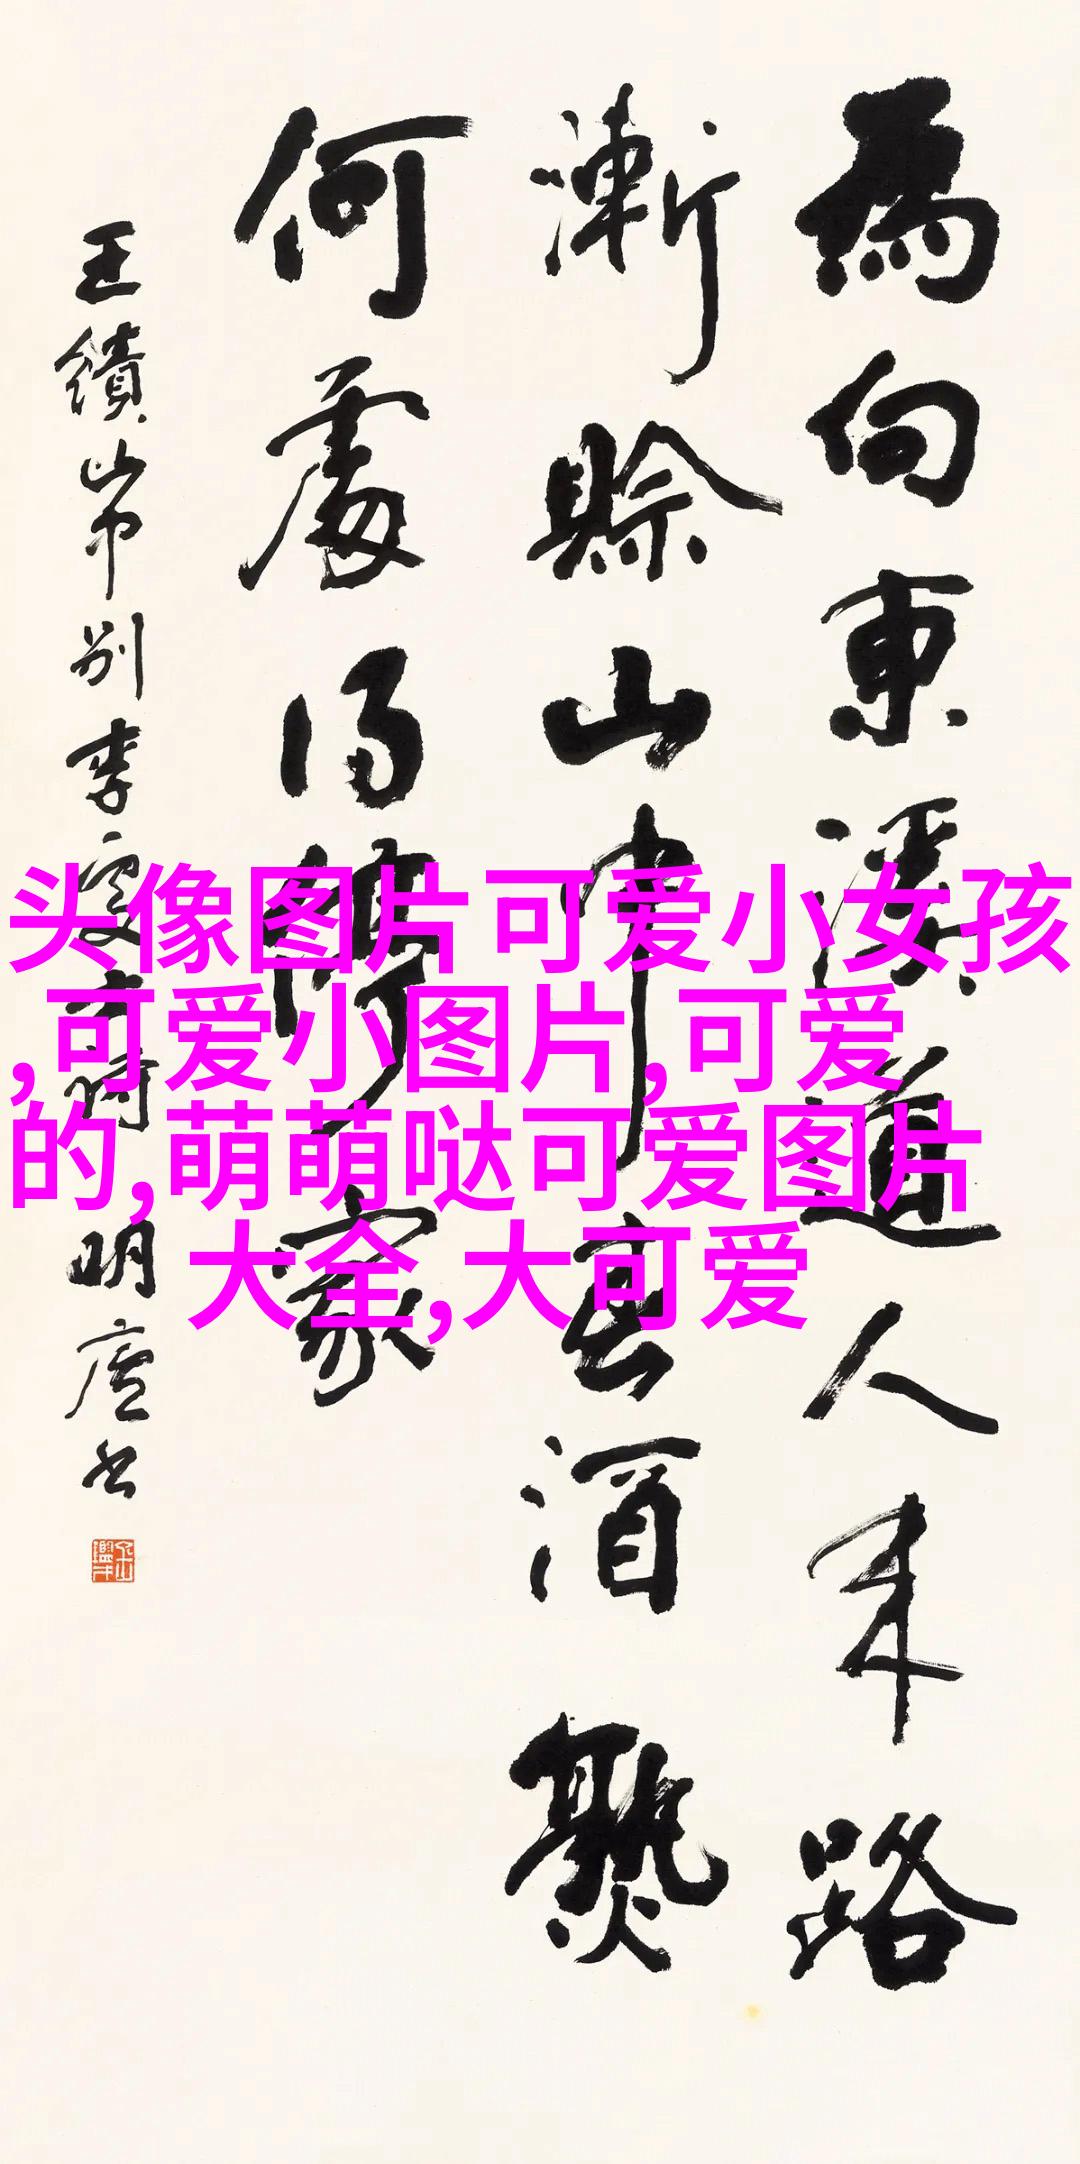 為向東溪道人來路
漸賒山中春酒熟
何處得停家
王績山中別李處士詩 明廬書
头像图片可爱小女孩
,可爱小图片,可爱
的,萌萌哒可爱图片
大全,大可爱